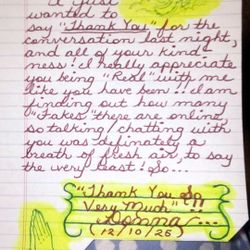 I just
wanted to
say "Thank You" for the
conversation last night,
and all of your kind-
ness! I really appreciate
you being "Real" with me
like you have been!! I am
finding out how many
"Fakes" there are online,
so talking/chatting with
you was definately a
breath of fresh air, to say
the very least! So...
"Thank You
Very Much"!!
Donna...
(12/10/25)